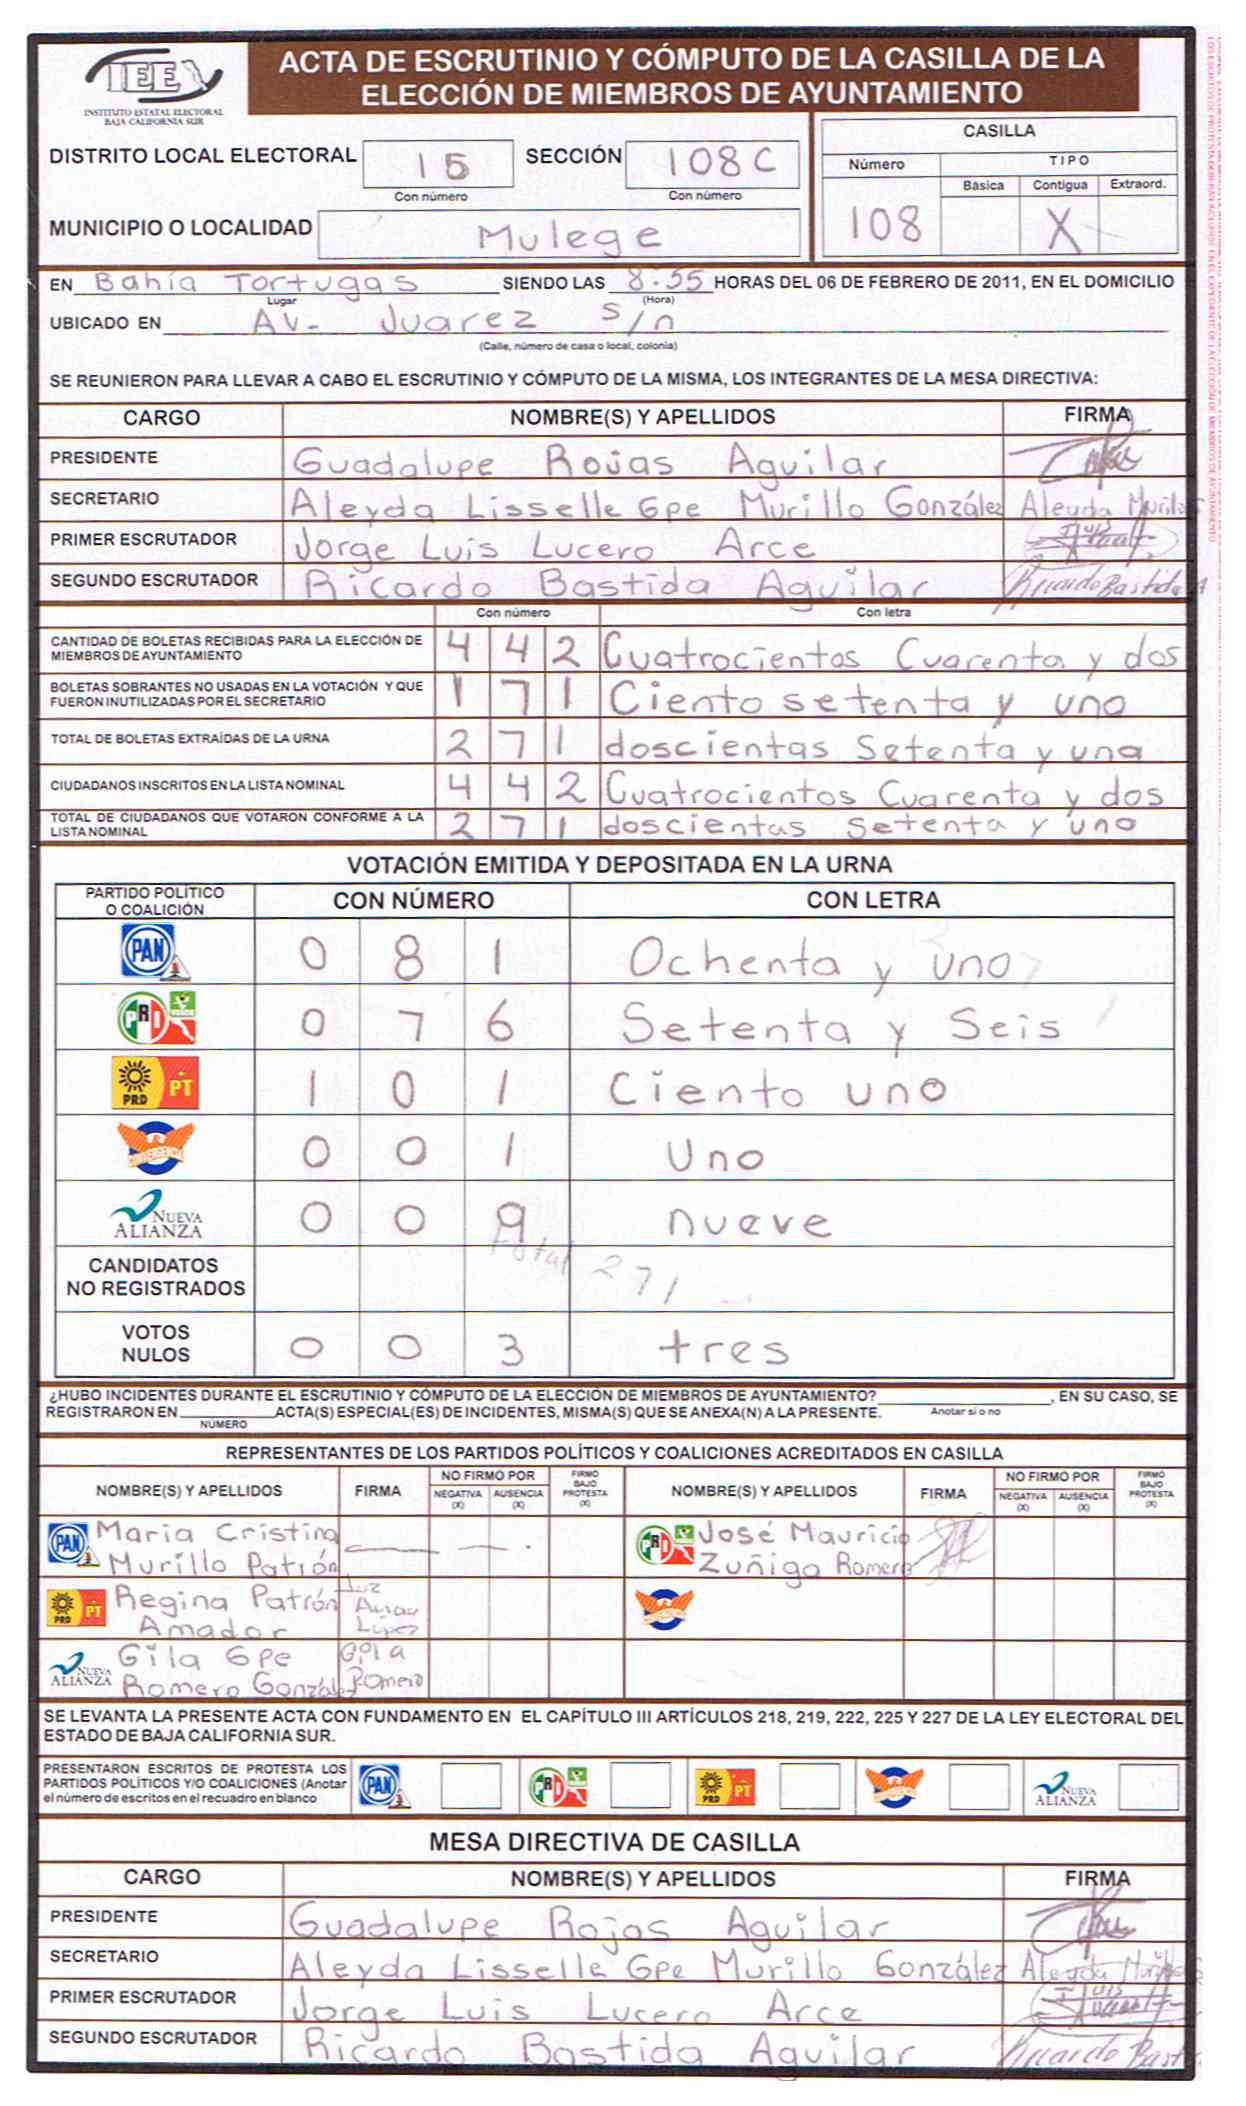 IEE
INSTITUTO ESTATAL ELECTORAL
BAJA CALIFORNIA SUR
ACTA DE ESCRUTINIO Y CÓMPUTO DE LA CASILLA DE LA
ELECCIÓN DE MIEMBROS DE AYUNTAMIENTO
DISTRITO LOCAL ELECTORAL 15 SECCIÓN 108C
Con número Con número
MUNICIPIO O LOCALIDAD Mulege
CASILLA
Número TIPO
Básica Contigua Extraord.
108 X
EN Bahía Tortugas SIENDO LAS 8:55 HORAS DEL 06 DE FEBRERO DE 2011, EN EL DOMICILIO
Lugar (Hora)
UBICADO EN Av- Juarez s/n
(Calle, número de casa o local, colonia)
SE REUNIERON PARA LLEVAR A CABO EL ESCRUTINIO Y CÓMPUTO DE LA MISMA, LOS INTEGRANTES DE LA MESA DIRECTIVA:
CARGO NOMBRE(S) Y APELLIDOS FIRMA
PRESIDENTE Guadalupe Rojas Aguilar
SECRETARIO Aleyda Lisselle Gpe Murillo González Aleyda Murillo
PRIMER ESCRUTADOR Jorge Luis Lucero Arce
SEGUNDO ESCRUTADOR Ricardo Bastida Aguilar Ricardo Bastida A
Con número Con letra
CANTIDAD DE BOLETAS RECIBIDAS PARA LA ELECCIÓN DE
MIEMBROS DE AYUNTAMIENTO 4 4 2 Cuatrocientos Cuarenta y dos
BOLETAS SOBRANTES NO USADAS EN LA VOTACIÓN Y QUE
FUERON INUTILIZADAS POR EL SECRETARIO 1 7 1 Ciento setenta y uno
TOTAL DE BOLETAS EXTRAÍDAS DE LA URNA 2 7 1 doscientas Setenta y una
CIUDADANOS INSCRITOS EN LA LISTA NOMINAL 4 4 2 Cuatrocientos Cuarenta y dos
TOTAL DE CIUDADANOS QUE VOTARON CONFORME A LA
LISTA NOMINAL 2 7 1 doscientas Setenta y uno
VOTACIÓN EMITIDA Y DEPOSITADA EN LA URNA
PARTIDO POLÍTICO
O COALICIÓN CON NÚMERO CON LETRA
PAN 0 8 1 Ochenta y uno
PRI VERDE 0 7 6 Setenta y Seis
PRD PT 1 0 1 Ciento uno
CONVERGENCIA 0 0 1 Uno
NUEVA ALIANZA 0 0 9 nueve
Total 271
CANDIDATOS
NO REGISTRADOS
VOTOS
NULOS 0 0 3 tres
¿HUBO INCIDENTES DURANTE EL ESCRUTINIO Y CÓMPUTO DE LA ELECCIÓN DE MIEMBROS DE AYUNTAMIENTO? , EN SU CASO, SE
REGISTRARON EN ACTA(S) ESPECIAL(ES) DE INCIDENTES, MISMA(S) QUE SE ANEXA(N) A LA PRESENTE. Anotar sí o no
NÚMERO
REPRESENTANTES DE LOS PARTIDOS POLÍTICOS Y COALICIONES ACREDITADOS EN CASILLA
NOMBRE(S) Y APELLIDOS FIRMA NO FIRMÓ POR NEGATIVA (X) AUSENCIA (X) FIRMÓ BAJO PROTESTA (X) NOMBRE(S) Y APELLIDOS FIRMA NO FIRMÓ POR NEGATIVA (X) AUSENCIA (X) FIRMÓ BAJO PROTESTA (X)
PAN Maria Cristina PRI José Mauricio
Murillo Patrón Zuñiga Romero
PRD PT Regina Patrón Luz
Amador López
NUEVA ALIANZA Gila Gpe Gila
Romero González Romero
SE LEVANTA LA PRESENTE ACTA CON FUNDAMENTO EN EL CAPÍTULO III ARTÍCULOS 218, 219, 222, 225 Y 227 DE LA LEY ELECTORAL DEL
ESTADO DE BAJA CALIFORNIA SUR.
PRESENTARON ESCRITOS DE PROTESTA LOS
PARTIDOS POLÍTICOS Y/O COALICIONES (Anotar
el número de escritos en el recuadro en blanco PAN PRI PRD PT NUEVA ALIANZA
MESA DIRECTIVA DE CASILLA
CARGO NOMBRE(S) Y APELLIDOS FIRMA
PRESIDENTE Guadalupe Rojas Aguilar
SECRETARIO Aleyda Lisselle Gpe Murillo González Aleyda Murillo
PRIMER ESCRUTADOR Jorge Luis Lucero Arce
SEGUNDO ESCRUTADOR Ricardo Bastida Aguilar Ricardo Bast